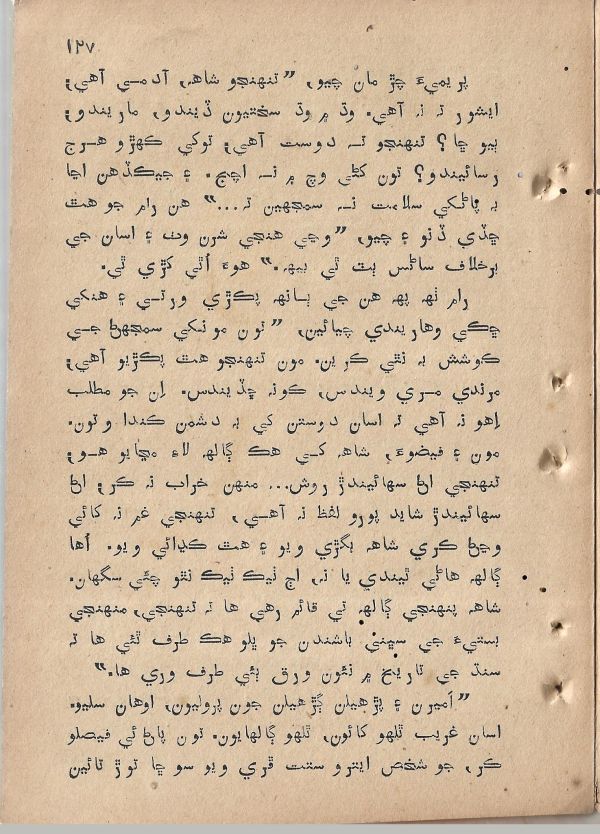 ۱۲۷
پريميءَ چڙ مان چيو، ”تنهنجو شاهه، آدمي آهي؛
ايشور ته نه آهي. وڌ ۾ وڌ سختيون ڏيندو، ماريندو؛
ٻيو ڇا؟ تنهنجو ته دوست آهي؛ توکي ڪهڙو هرج
رسائيندو؟ تون کڻي وچ ۾ نه اچج. ۽ جيڪڏهن اڃا
به پاڻکي سلامت نه سمجهين ته...“ هن رام جو هٿ
ڇڏي ڏنو ۽ چيو، ”وڃي هنجي شرن وٺ ۽ اسان جي
برخلاف ساڻس ٻٽ ٿي بيهه.“ هوءَ اُٿي کڙي ٿي.
رام ٺهه پهه هن جي ٻانهه پڪڙي ورتي ۽ هنکي
ڇڪي وهاريندي چيائين، ”تون مونکي سمجهڻ جي
ڪوشش به نٿي ڪرين. مون تنهنجو هٿ پڪڙيو آهي؛
مرندي مري ويندس، ڪونه ڇڏيندس. اِن جو مطلب
اِهو نه آهي ته اسان دوستن کي به دشمن ڪندا وتون.
مون ۽ فيضوءَ، شاهه کي هڪ ڳالهه لاءِ مڃايو هو؛
تنهنجي اڻ سهائيندڙ روش... منهن خراب نه ڪر؛ اڻ
سهائيندڙ شايد پورو لفظ نه آهي، تنهنجي غم نه کائي
وڃڻ ڪري شاهه بگڙي ويو ۽ هٿ ڪڍائي ويو. اُها
ڳالهه هاڻي ٿيندي يا نه، اڄ ٺيڪ ٺيڪ نٿو چئي سگهان.
شاهه پنهنجي ڳالهه تي قائم رهي ها ته تنهنجي، منهنجي
بستيءَ جي سڀني باشندن جو ڀلو هڪ طرف ٿئي ها ته
سنڌ جي تاريخ ۾ نئون ورق ٻئي طرف وري ها.“
”اَميرن ۽ پڙهيلن ڳڙهيلن جون پروليون، اوهان سليو.
اسان غريب ٿلهو کائون، ٿلهو ڳالهايون. تون پاڻ ئي فيصلو
ڪر، جو شخص ايترو سستت ڦري ويو سو ڇا توڙ تائين